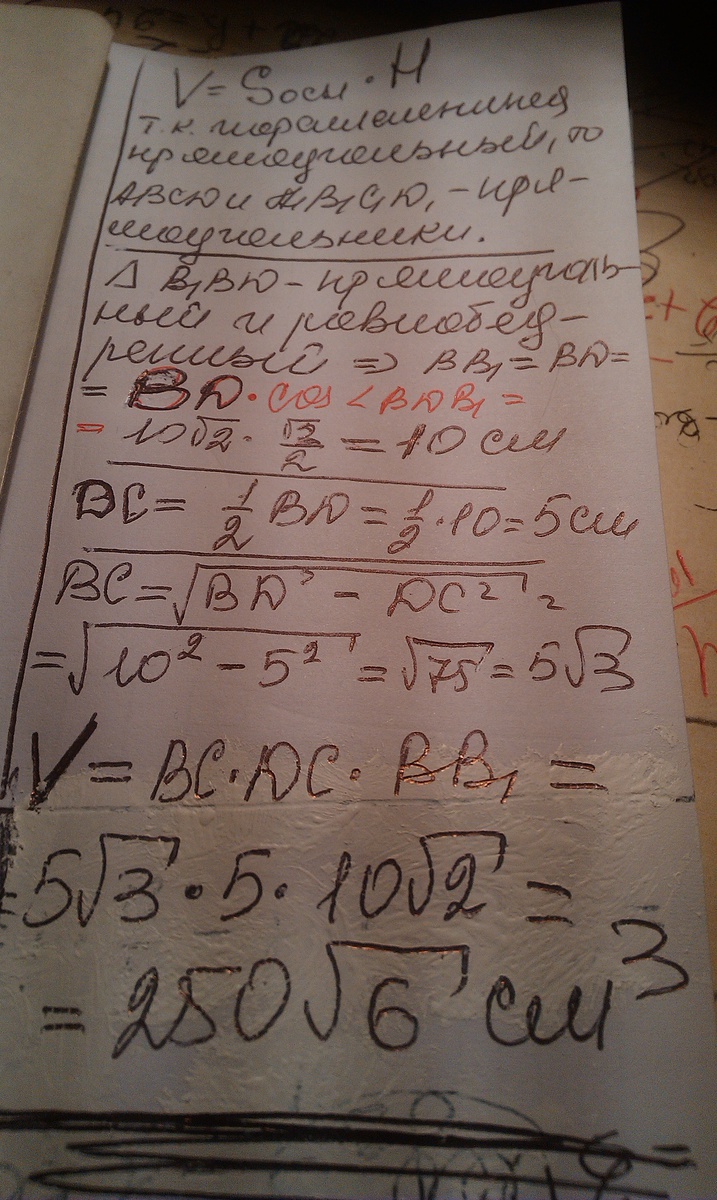 V = Sосн · H
т.к. параллелепипед
прямоугольный, то
ABCD и A₁B₁C₁D₁ - пря-
моугольники.
Δ B₁BD - прямоуголь-
ный и равнобед-
ренный ⇒ BB₁ = BD =
= BD · cos < BDB₁ =
= 10√2 · √2/2 = 10 см
DC = 1/2 BD = 1/2 · 10 = 5 см
BC = √BD² - DC² =
= √10² - 5² = √75 = 5√3
V = BC · DC · BB₁ =
= 5√3 · 5 · 10√2 =
= 250√6 см³